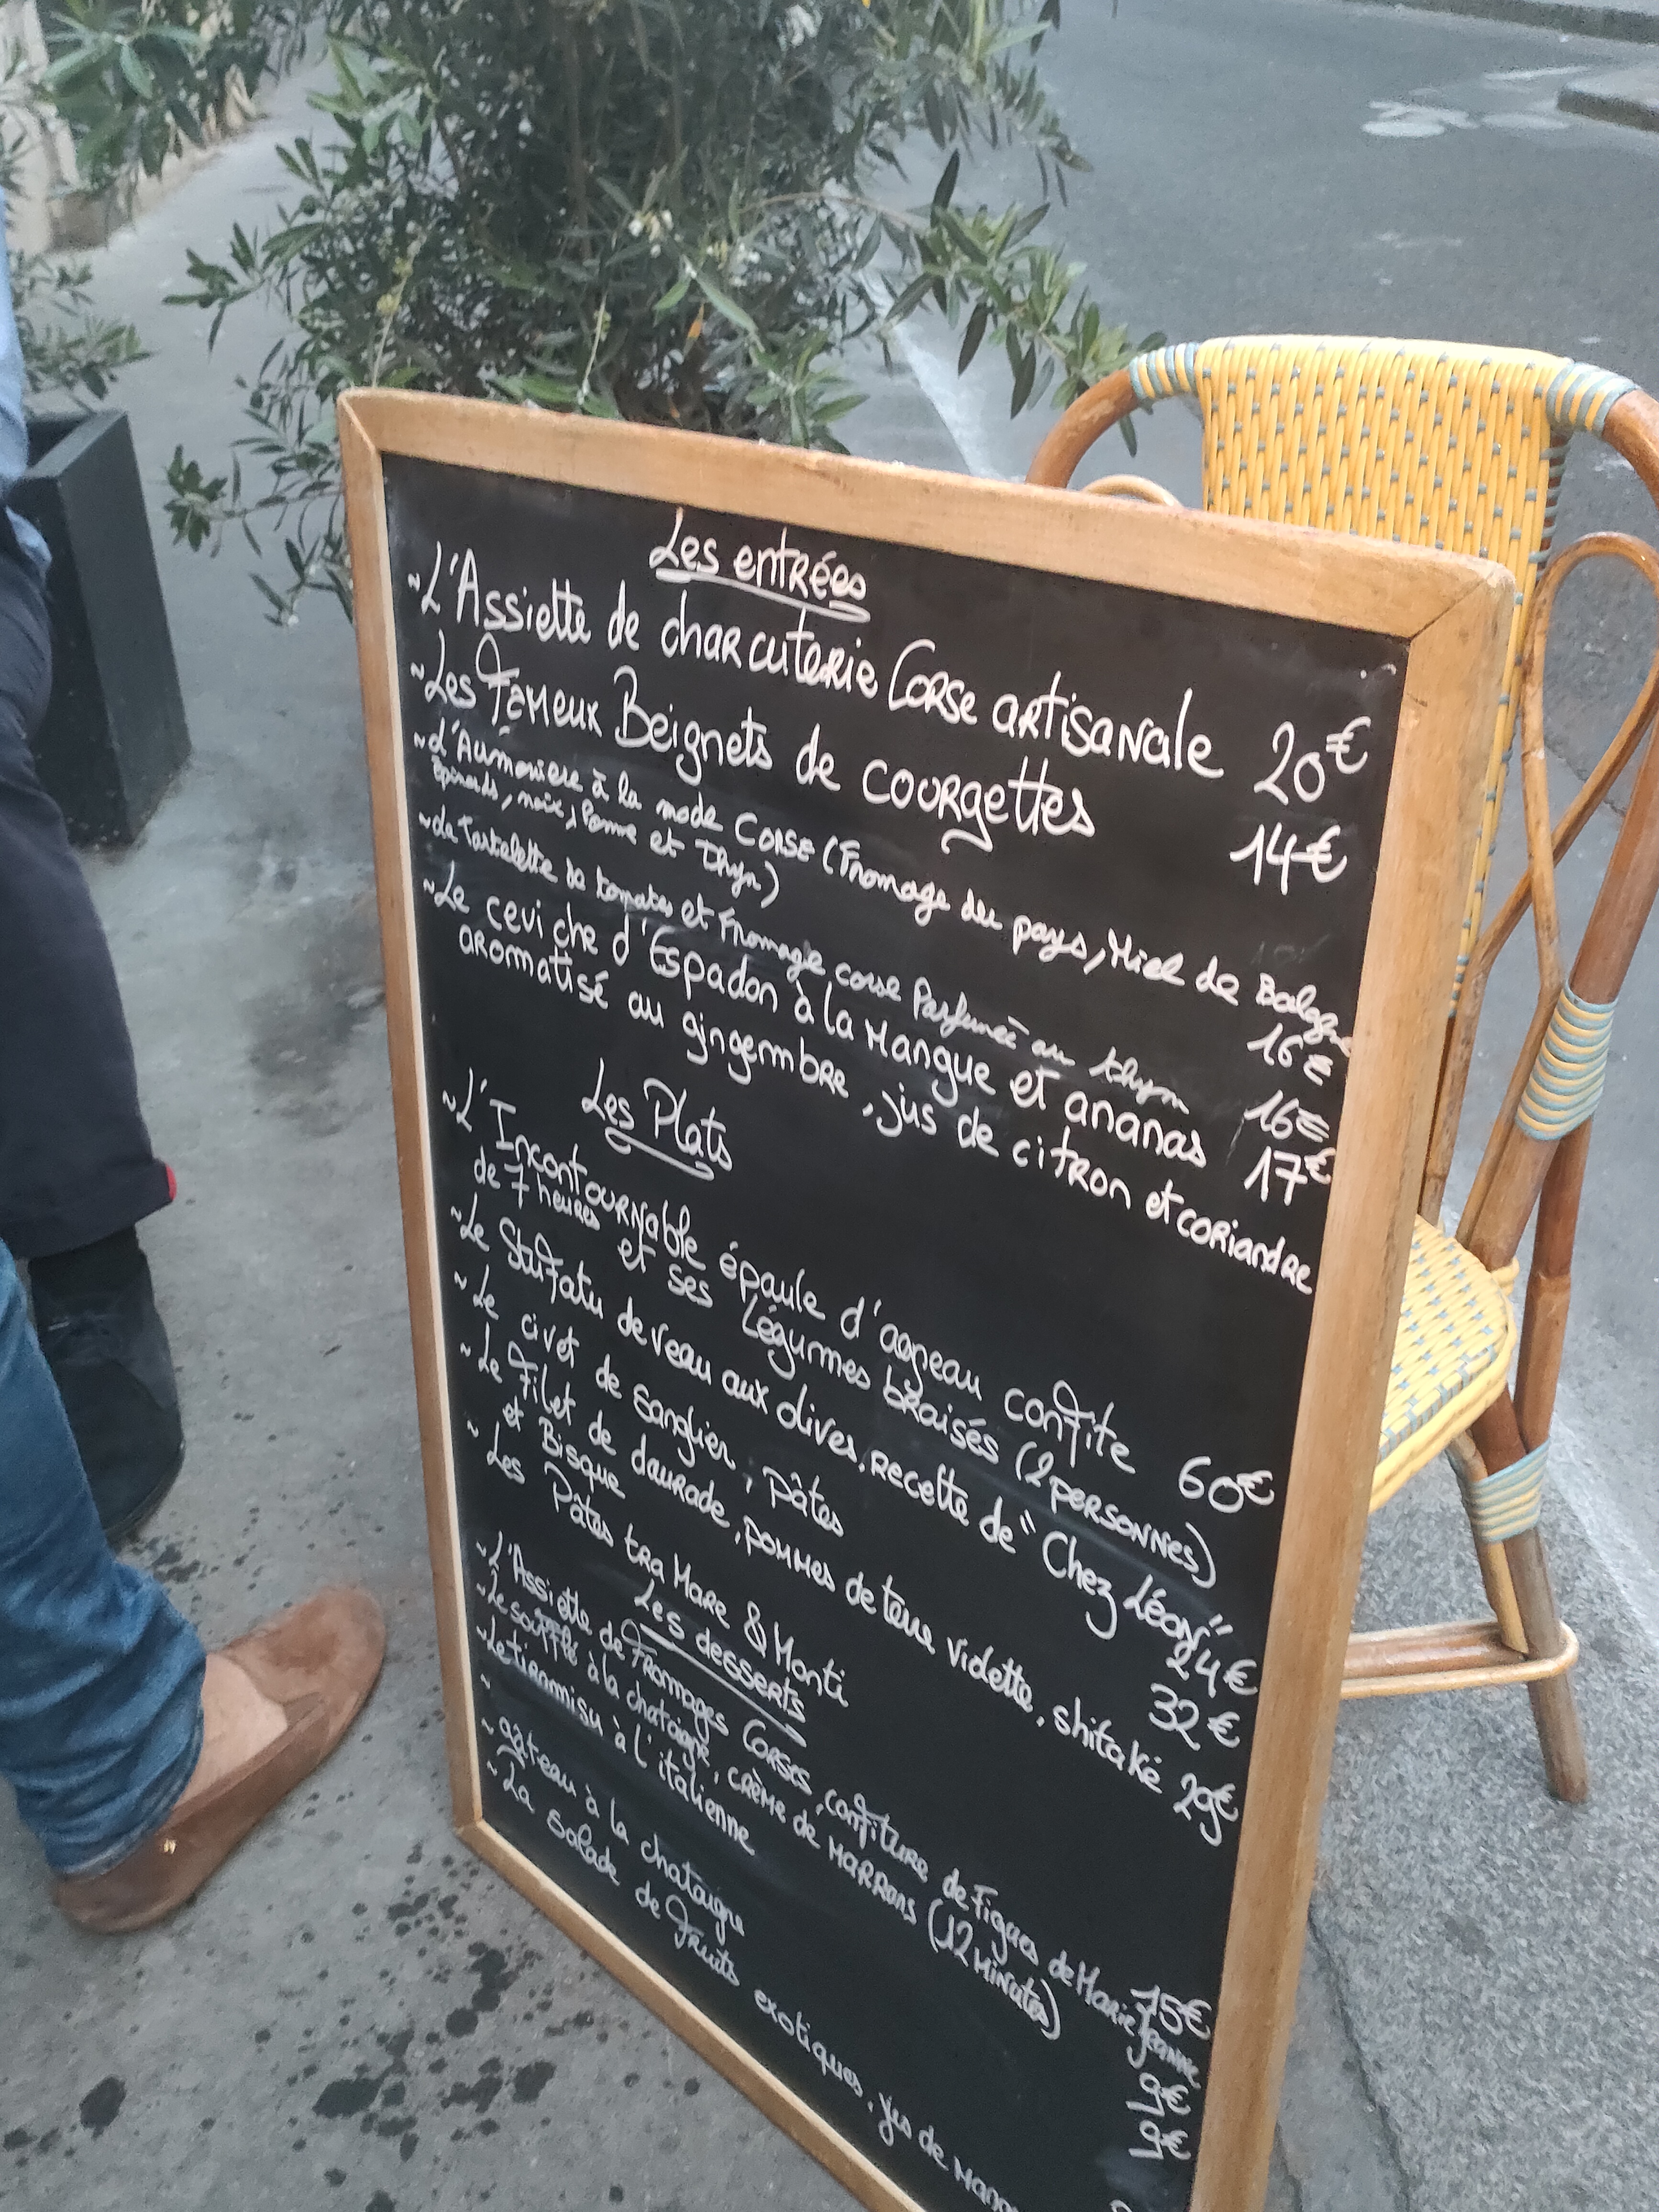 Les entrées
~ L'Assiette de charcuterie Corse artisanale 20€
~ Les Fameux Beignets de courgettes 14€
~ L'Aumônière à la mode CORSE (Fromage du pays, Miel de Balagne
Epinards, noix, Pomme et Thym) 16€
~ La Tartelette de tomates et Fromage corse Parfumée au thym 16€
~ Le ceviche d'Espadon à la Mangue et ananas 17€
aromatisé au gingembre, jus de citron et coriandre
Les Plats
~ L'Incontournable épaule d'agneau confite 60€
de 7 heures et ses Légumes braisés (2 personnes)
~ Le Stufatu de veau aux olives, recette de "Chez Léon" 24€
~ Le civet de sanglier, pâtes 32€
~ Le Filet de daurade, pommes de terre vidette, shitaké 29€
et Bisque
~ Les Pâtes tra Mare & Monti
Les desserts
~ L'Assiette de Fromages Corses, confiture de Figues de Marie Jeanne 15€
~ Le soufflé à la chataigne, crème de marrons (12 minutes) 9€
~ Le tiramisu à l'italienne 9€
~
~ gâteau à la chataigne
~ La salade de fruits exotiques, jus de